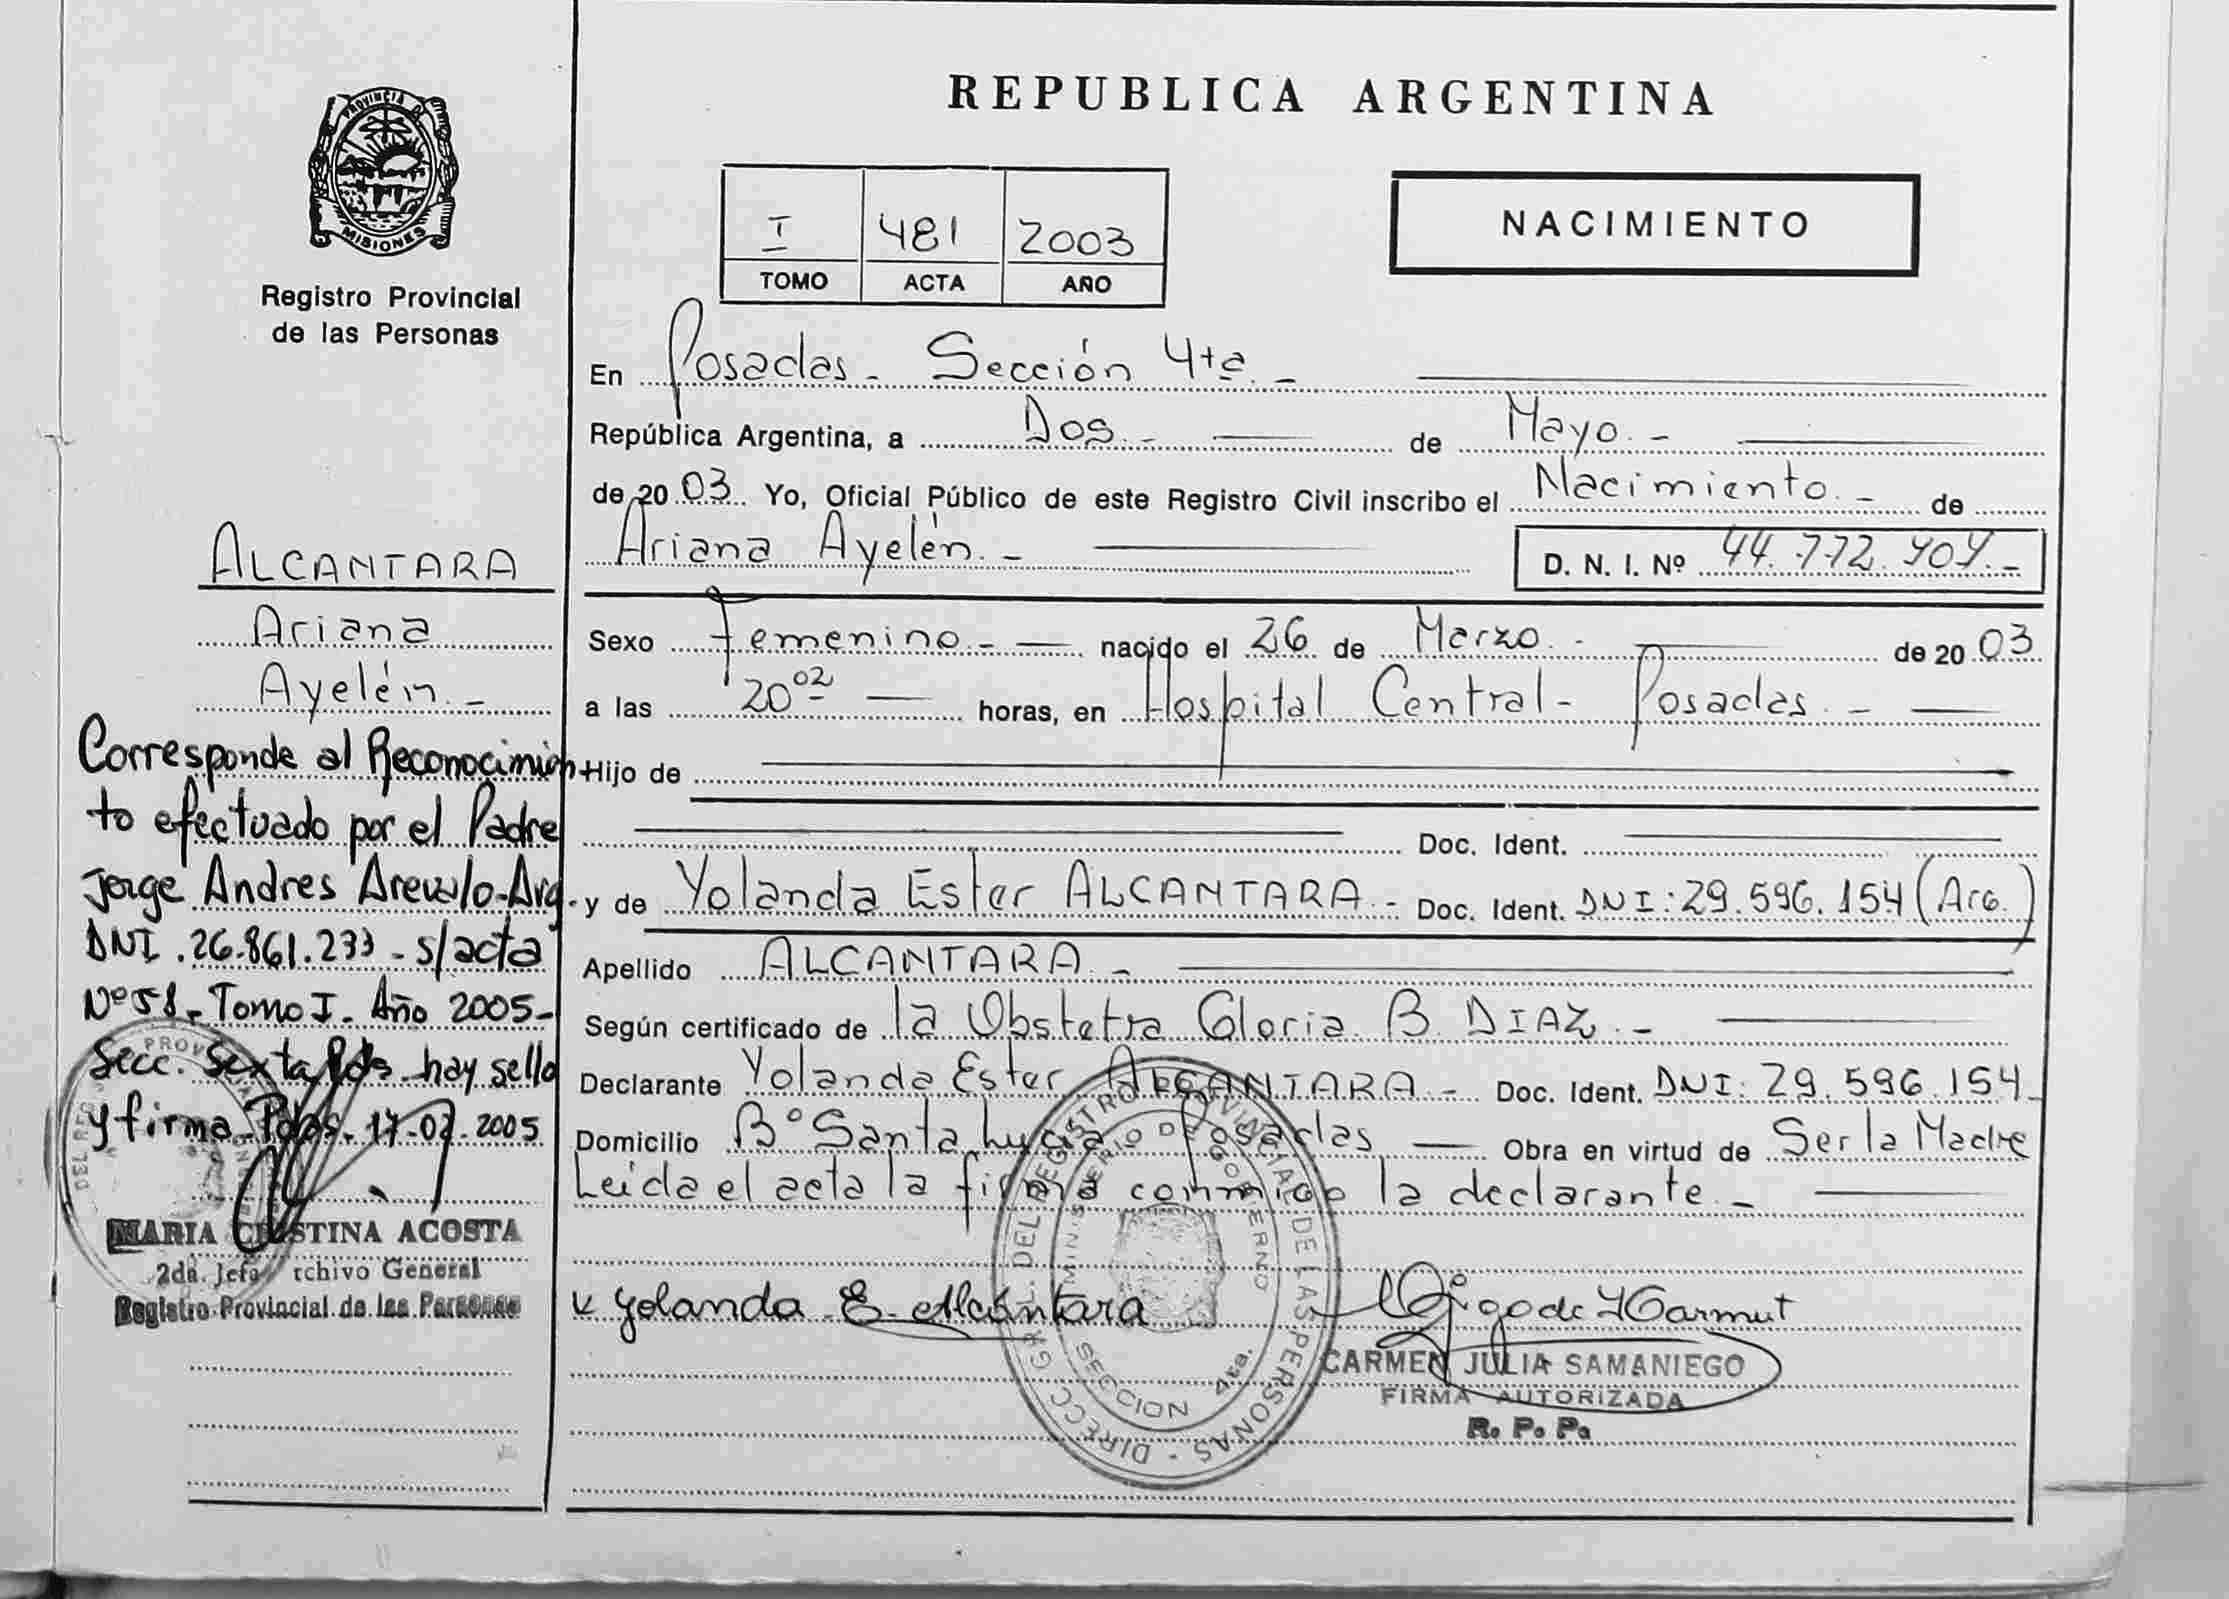 PROVINCIA DE
MISIONES
Registro Provincial
de las Personas
ALCANTARA
Ariana
Ayelén.-
Corresponde al Reconocimien
to efectuado por el Padre
Jorge Andres Arevalo-Arg.
DNI.26.861.233-s/acta
Nº58-Tomo I. Año 2005-
Secc. Sexta Pdas. hay sello
y firma-Pdas. 17-02-2005
MARIA CRISTINA ACOSTA
2da. Jefa Archivo General
Registro Provincial de las Personas
REPUBLICA ARGENTINA
I 481 2003
TOMO ACTA AÑO
NACIMIENTO
En Posadas.- Sección 4ta.-
República Argentina, a Dos.- de Mayo.-
de 2003 Yo, Oficial Público de este Registro Civil inscribo el Nacimiento.- de
Ariana Ayelén.- D. N. I. Nº 44.772.
Sexo Femenino.- nacido el 26 de Marzo.- de 2003
a las 20 02 horas, en Hospital Central- Posadas.-
Hijo de
Doc. Ident.
y de Yolanda Ester ALCANTARA.- Doc. Ident. DNI:29.596.154 (Arg.)
Apellido ALCANTARA.-
Según certificado de la Obstetra Gloria B. DIAZ.-
Declarante Yolanda Ester ALCANTARA.- Doc. Ident. DNI: 29.596.154
Domicilio Bº Santa Lucia Posadas Obra en virtud de Ser la Madre
Leida el acta la firma conmigo la declarante.-
Yolanda E. Alcántara
CARMEN JULIA SAMANIEGO
FIRMA AUTORIZADA
R. P. P.
DIRECC. GRAL. DEL REGISTRO PROVINCIAL DE LAS PERSONAS -
MINISTERIO DE GOBIERNO
SECCION 4ta.